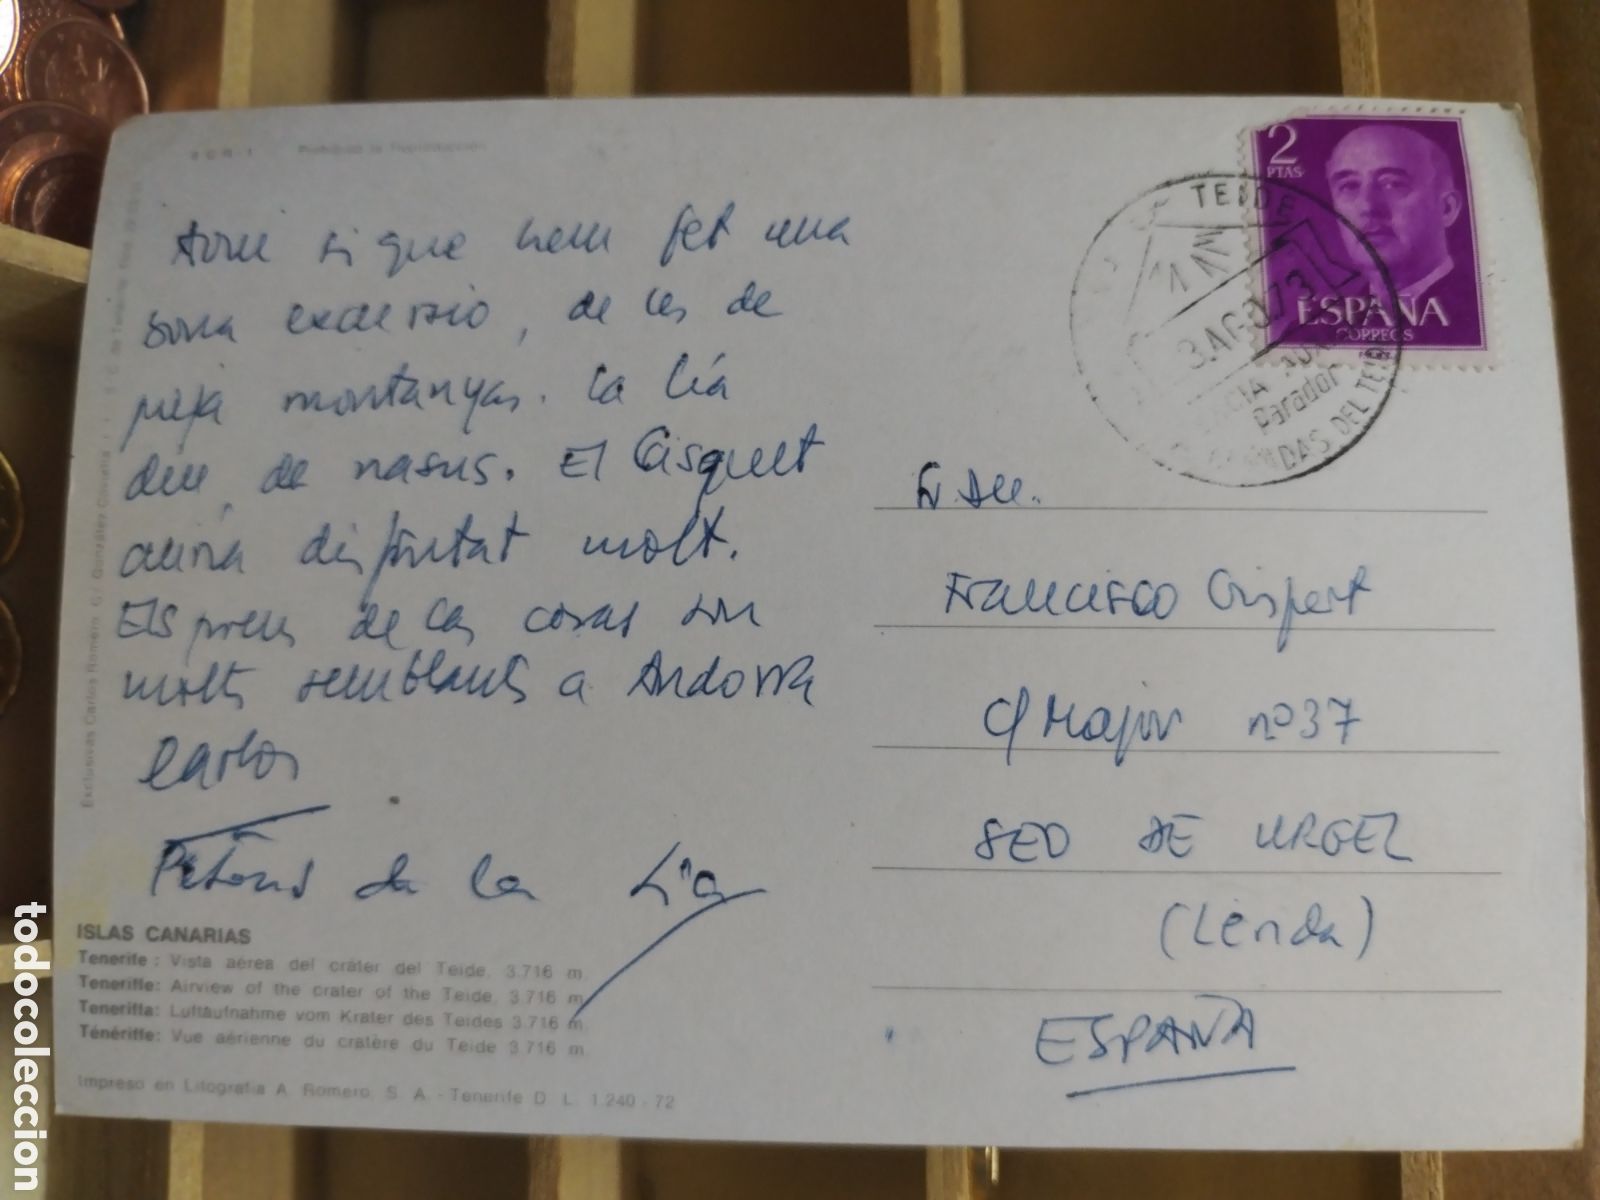 Prohibida la Reproducción
Avui si que hem fet una
bona excursio, de les de
pujà montanyas. La Lía
diu, de nasus. El Cisquet
auria disfrutat molt.
Els preus de las cosas son
molts semblants a Andorra
Carlos
Petons de la Lía
ISLAS CANARIAS
Tenerife: Vista aérea del cráter del Teide, 3.716 m.
Teneriffe: Airview of the crater of the Teide, 3.716 m.
Teneriffa: Luftaufnahme vom Krater des Teides 3.716 m.
Ténériffe: Vue aérienne du cratère du Teide 3.716 m.
Impreso en Litografía A. Romero, S. A. - Tenerife D. L. 1.240 - 72
Exclusivas Carlos Romero
2
PTAS
ESPAÑA
CORREOS
TEIDE
3.AGO.73
Parador
CAÑADAS DEL TEIDE
Francisco Crispert
C/ Major nº 37
SEO DE URGEL
(Lerida)
ESPAÑA
todocoleccion